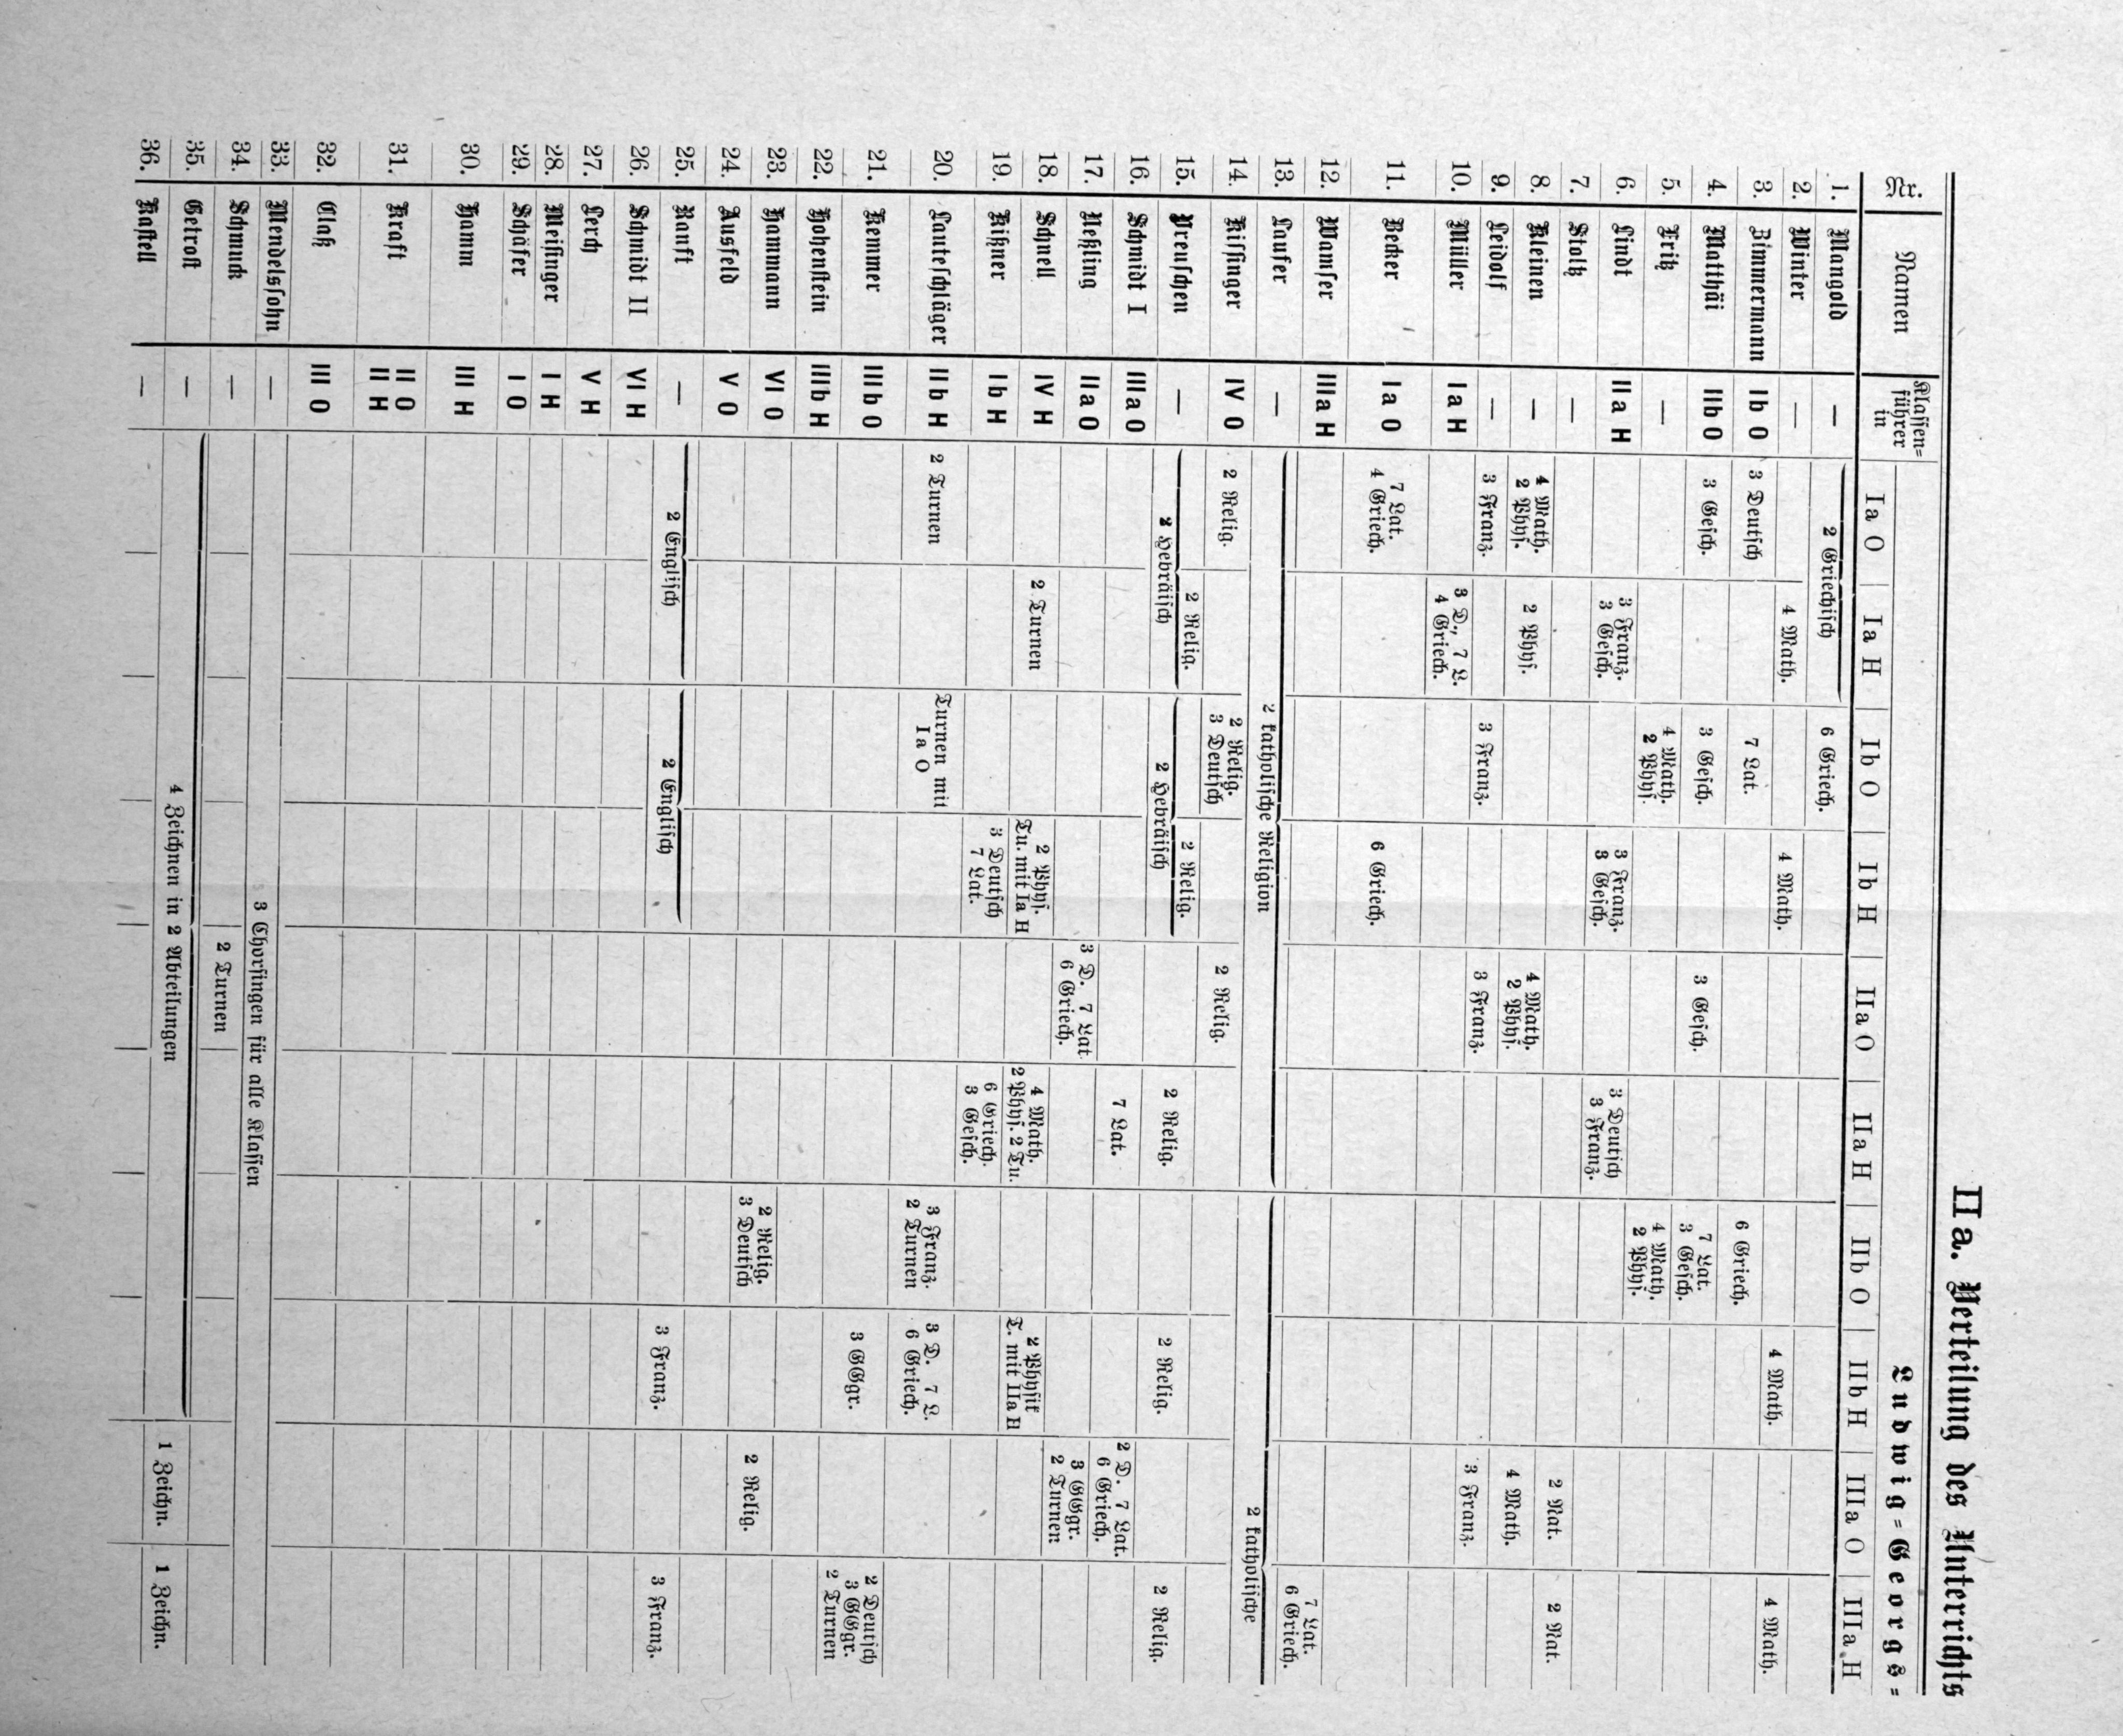 IIa. Verteilung des Unterrichts
Ludwig=Georgs=
Nr. Namen Klassen= führer in Ia O Ia H Ib O Ib H IIa O IIa H IIb O IIb H IIIa O IIIa H
1. Mangold — 2 Griechisch 6 Griech.
2. Winter — 4 Math. 4 Math. 4 Math. 4 Math.
3. Zimmermann Ib O 3 Deutsch 7 Lat. 6 Griech.
4. Matthäi IIb O 3 Gesch. 3 Gesch. 3 Gesch. 7 Lat. 3 Gesch.
5. Fritz — 4 Math. 2 Phys. 4 Math. 2 Phys.
6. Lindt IIa H 3 Franz. 3 Gesch. 3 Franz. 3 Gesch. 3 Deutsch 3 Franz.
7. Stoltz — 2 Nat. 2 Nat.
8. Kleinen — 4 Math. 2 Phys. 2 Phys. 4 Math. 2 Phys. 4 Math.
9. Leidolf — 3 Franz. 3 Franz. 3 Franz. 3 Franz.
10. Müller Ia H 3 D., 7 L. 4 Griech.
11. Becker Ia O 7 Lat. 4 Griech. 6 Griech.
12. Wamser IIIa H 7 Lat. 6 Griech.
13. Laufer — 2 katholische Religion 2 katholische
14. Kissinger IV O 2 Relig. 2 Relig. 3 Deutsch 2 Relig.
15. Preuschen — 2 Relig. 2 Hebräisch 2 Relig. 2 Hebräisch 2 Relig. 2 Relig. 2 Relig.
16. Schmidt I IIIa O 7 Lat. 2 D. 7 Lat. 6 Griech.
17. Neßling IIa O 3 D. 7 Lat 6 Griech. 3 GGgr. 2 Turnen
18. Schnell IV H 2 Turnen 2 Phys. Tu. mit Ia H 4 Math. 2 Phys. 2 Tu. 2 Physik T. mit IIa H
19. Kißner Ib H 3 Deutsch 7 Lat. 6 Griech. 3 Gesch.
20. Lauteschläger IIb H 2 Turnen Turnen mit Ia O 3 Franz. 2 Turnen 3 D. 7 L. 6 Griech.
21. Kemmer IIIb O 3 GGgr. 2 Deutsch 3 GGgr. 2 Turnen
22. Hohenstein IIIb H
23. Hammann VI O 2 Relig. 3 Deutsch 2 Relig.
24. Ausfeld V O
25. Ranft — 2 Englisch 2 Englisch 3 Franz. 3 Franz.
26. Schmidt II VI H
27. Lerch V H
28. Meisinger I H
29. Schäfer I O
30. Hamm III H
31. Kraft II O II H
32. Claß III O
33. Mendelssohn — 3 Chorsingen für alle Klassen
34. Schmuck — 2 Turnen
35. Getrost — 4 Zeichnen in 2 Abteilungen 1 Zeichn. 1 Zeichn.
36. Kastell —